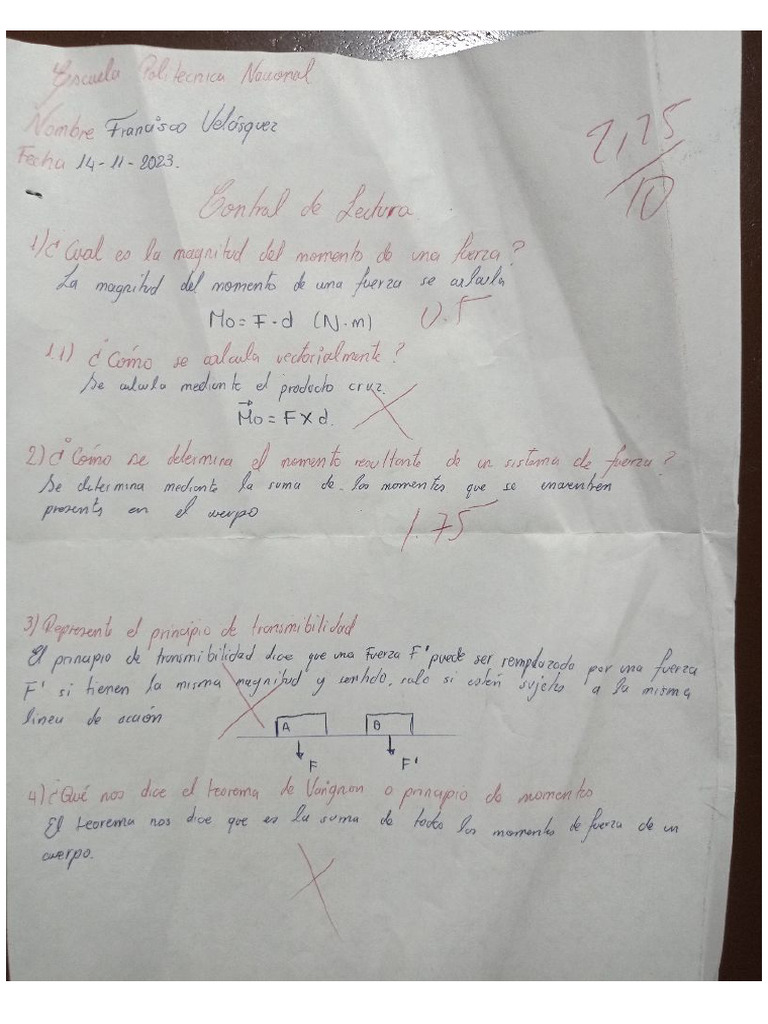 Escuela Politecnica Nacional
Nombre Francisco Velásquez
Fecha 14-11-2023.
2,25/10
Control de Lectura
1) ¿Cual es la magnitud del momento de una fuerza?
La magnitud del momento de una fuerza se calcula
Mo = F · d (N·m) 0.5
1.1) ¿Como se calcula vectorialmente?
Se calcula mediante el producto cruz.
M⃗o = F x d.
2) ¿Como se determina el momento resultante de un sistema de fuerza?
Se determina mediante la suma de los momentos que se encuentren
presents en el cuerpo
1.75
3) Represente el principio de transmibilidad
El principio de transmibilidad dice que una Fuerza F' puede ser remplazada por una fuerza
F' si tienen la misma magnitud y sentido, solo si estén sujetos a la misma
linea de acción
A B
F F'
4) ¿Qué nos dice el teorema de Varignon o principio de momentos
El teorema nos dice que es la suma de todos los momentos de fuerza de un
cuerpo.